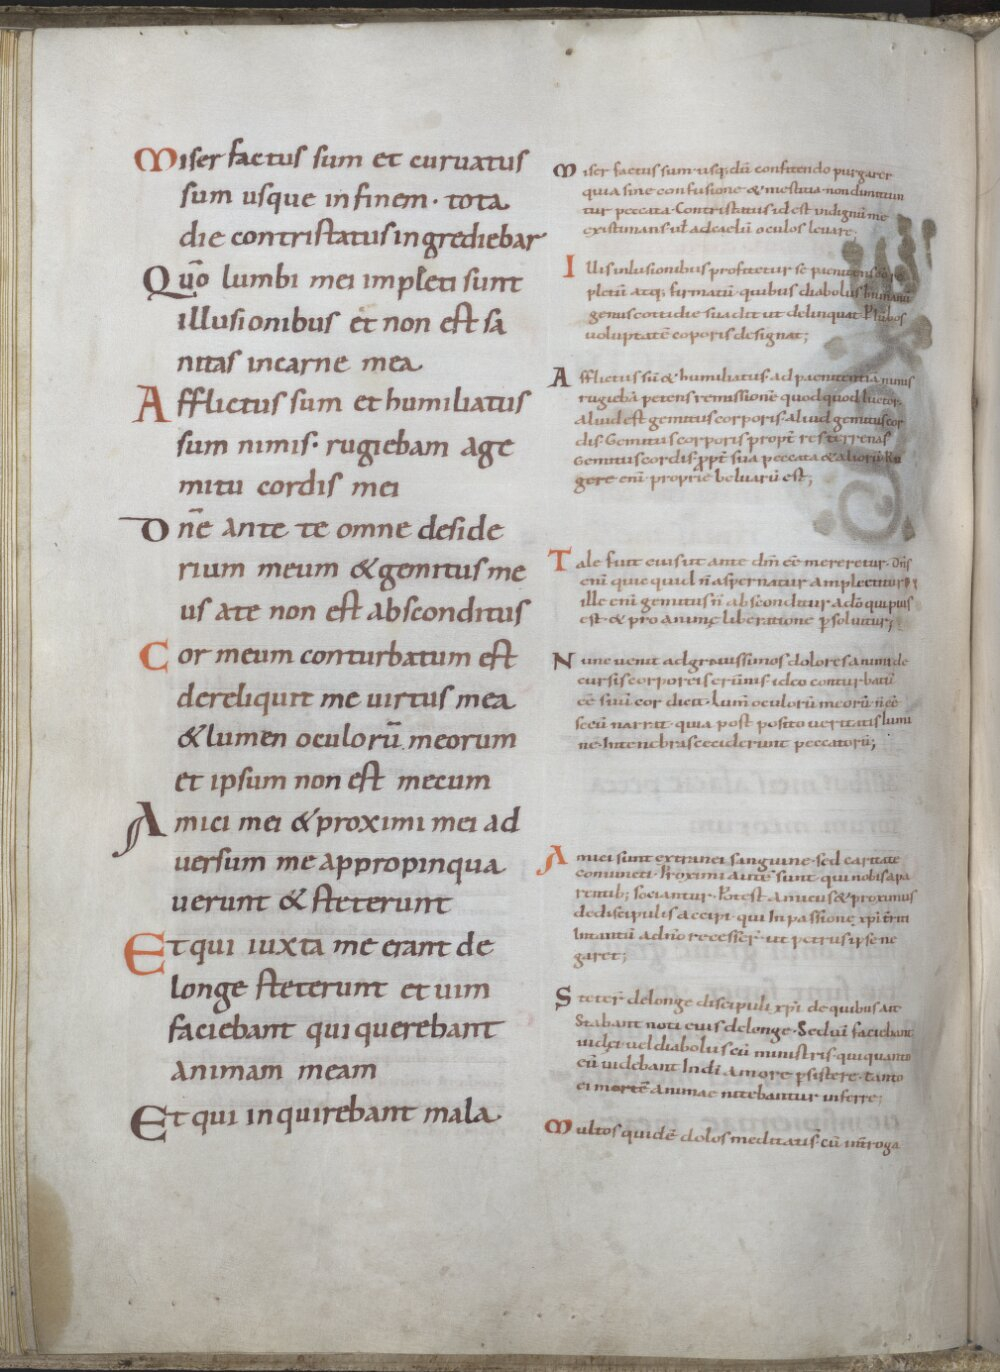 Miser factus sum et curvatus
sum usque in finem · tota
die contristatus ingrediebar
Qūo lumbi mei impleti sunt
illusionibus et non est sa
nitas incarne mea
Afflictus sum et humiliatus
sum nimis · rugiebam age
mitu cordis mei
Dn̄e ante te omne deside
rium meum & gemitus me
us ate non est absconditus
Cor meum conturbatum est
dereliquit me uirtus mea
& lumen oculorū meorum
et ipsum non est mecum
Amici mei & proximi mei ad
uersum me appropinqua
uerunt & steterunt
Et qui iuxta me erant de
longe steterunt et uim
faciebant qui querebant
animam meam
Et qui inquirebant mala
Miser factus sum · usq; dū confitendo purgarer
quia sine confusione & mestitia · non dimittun
tur peccata · Contristatus id est indignū me
existimans ut̄ ad caelū oculos leuare;
Illis inlusionibus profitetur se paenitens
pletū atq; firmatū · quibus diabolus humanū
genus cottidie suadit ut delinquat · P lūbos
uoluptatē coporis designat;
Afflictus sū & humiliatus · ad paenitentiā nimis
rugiebā petens remissionē quod quod
aliud est gemitus corporis · aliud gemitus cor
dis · Gemitus corporis propt̄ res terrenas
Gemitus cordis ꝓpt̄ sua peccata & aliorū · Ru
gere eni proprie beluarū est;
Tale fuit eius ut ante dm̄ eē mereretur · Dn̄s
eni quicquid n̄ aspernatur amplectitur
ille eni gemitus n̄ absconditur adō qui pius
est · & pro animę liberatione ꝑsoluitur;
Nunc uenit ad grauissimos dolores animi de
cursis corporeis erūnis · ideo conturbatū
eē suū cor dicit · Lum̄ oculorū meorū n̄ eē
secū narrat · quia post posito ueritatis lumi
ne · In tenebras ceciderunt peccatorū;
Amici sunt extranei sanguine · sed caritate
coniuncti · Proximi autē sunt · qui nobis apa
rentib; sociantur · Potest amicus & proximus
de discipulis accipi · qui In passione xp̄i
adn̄o recesser̄ · ut petrus ipse ne
garet;
Steter̄ de longe discipuli xp̄i · de quibus ait
Stabant noti eius de longe · Sed uī faciebant
iudęi uel diabolus cū ministris · qui quanto
eū uidebant Indī amore ꝑsistere · tanto
ei mortē animae nitebantur inferre;
Multos quidē dolos meditatis · cū int̄roga